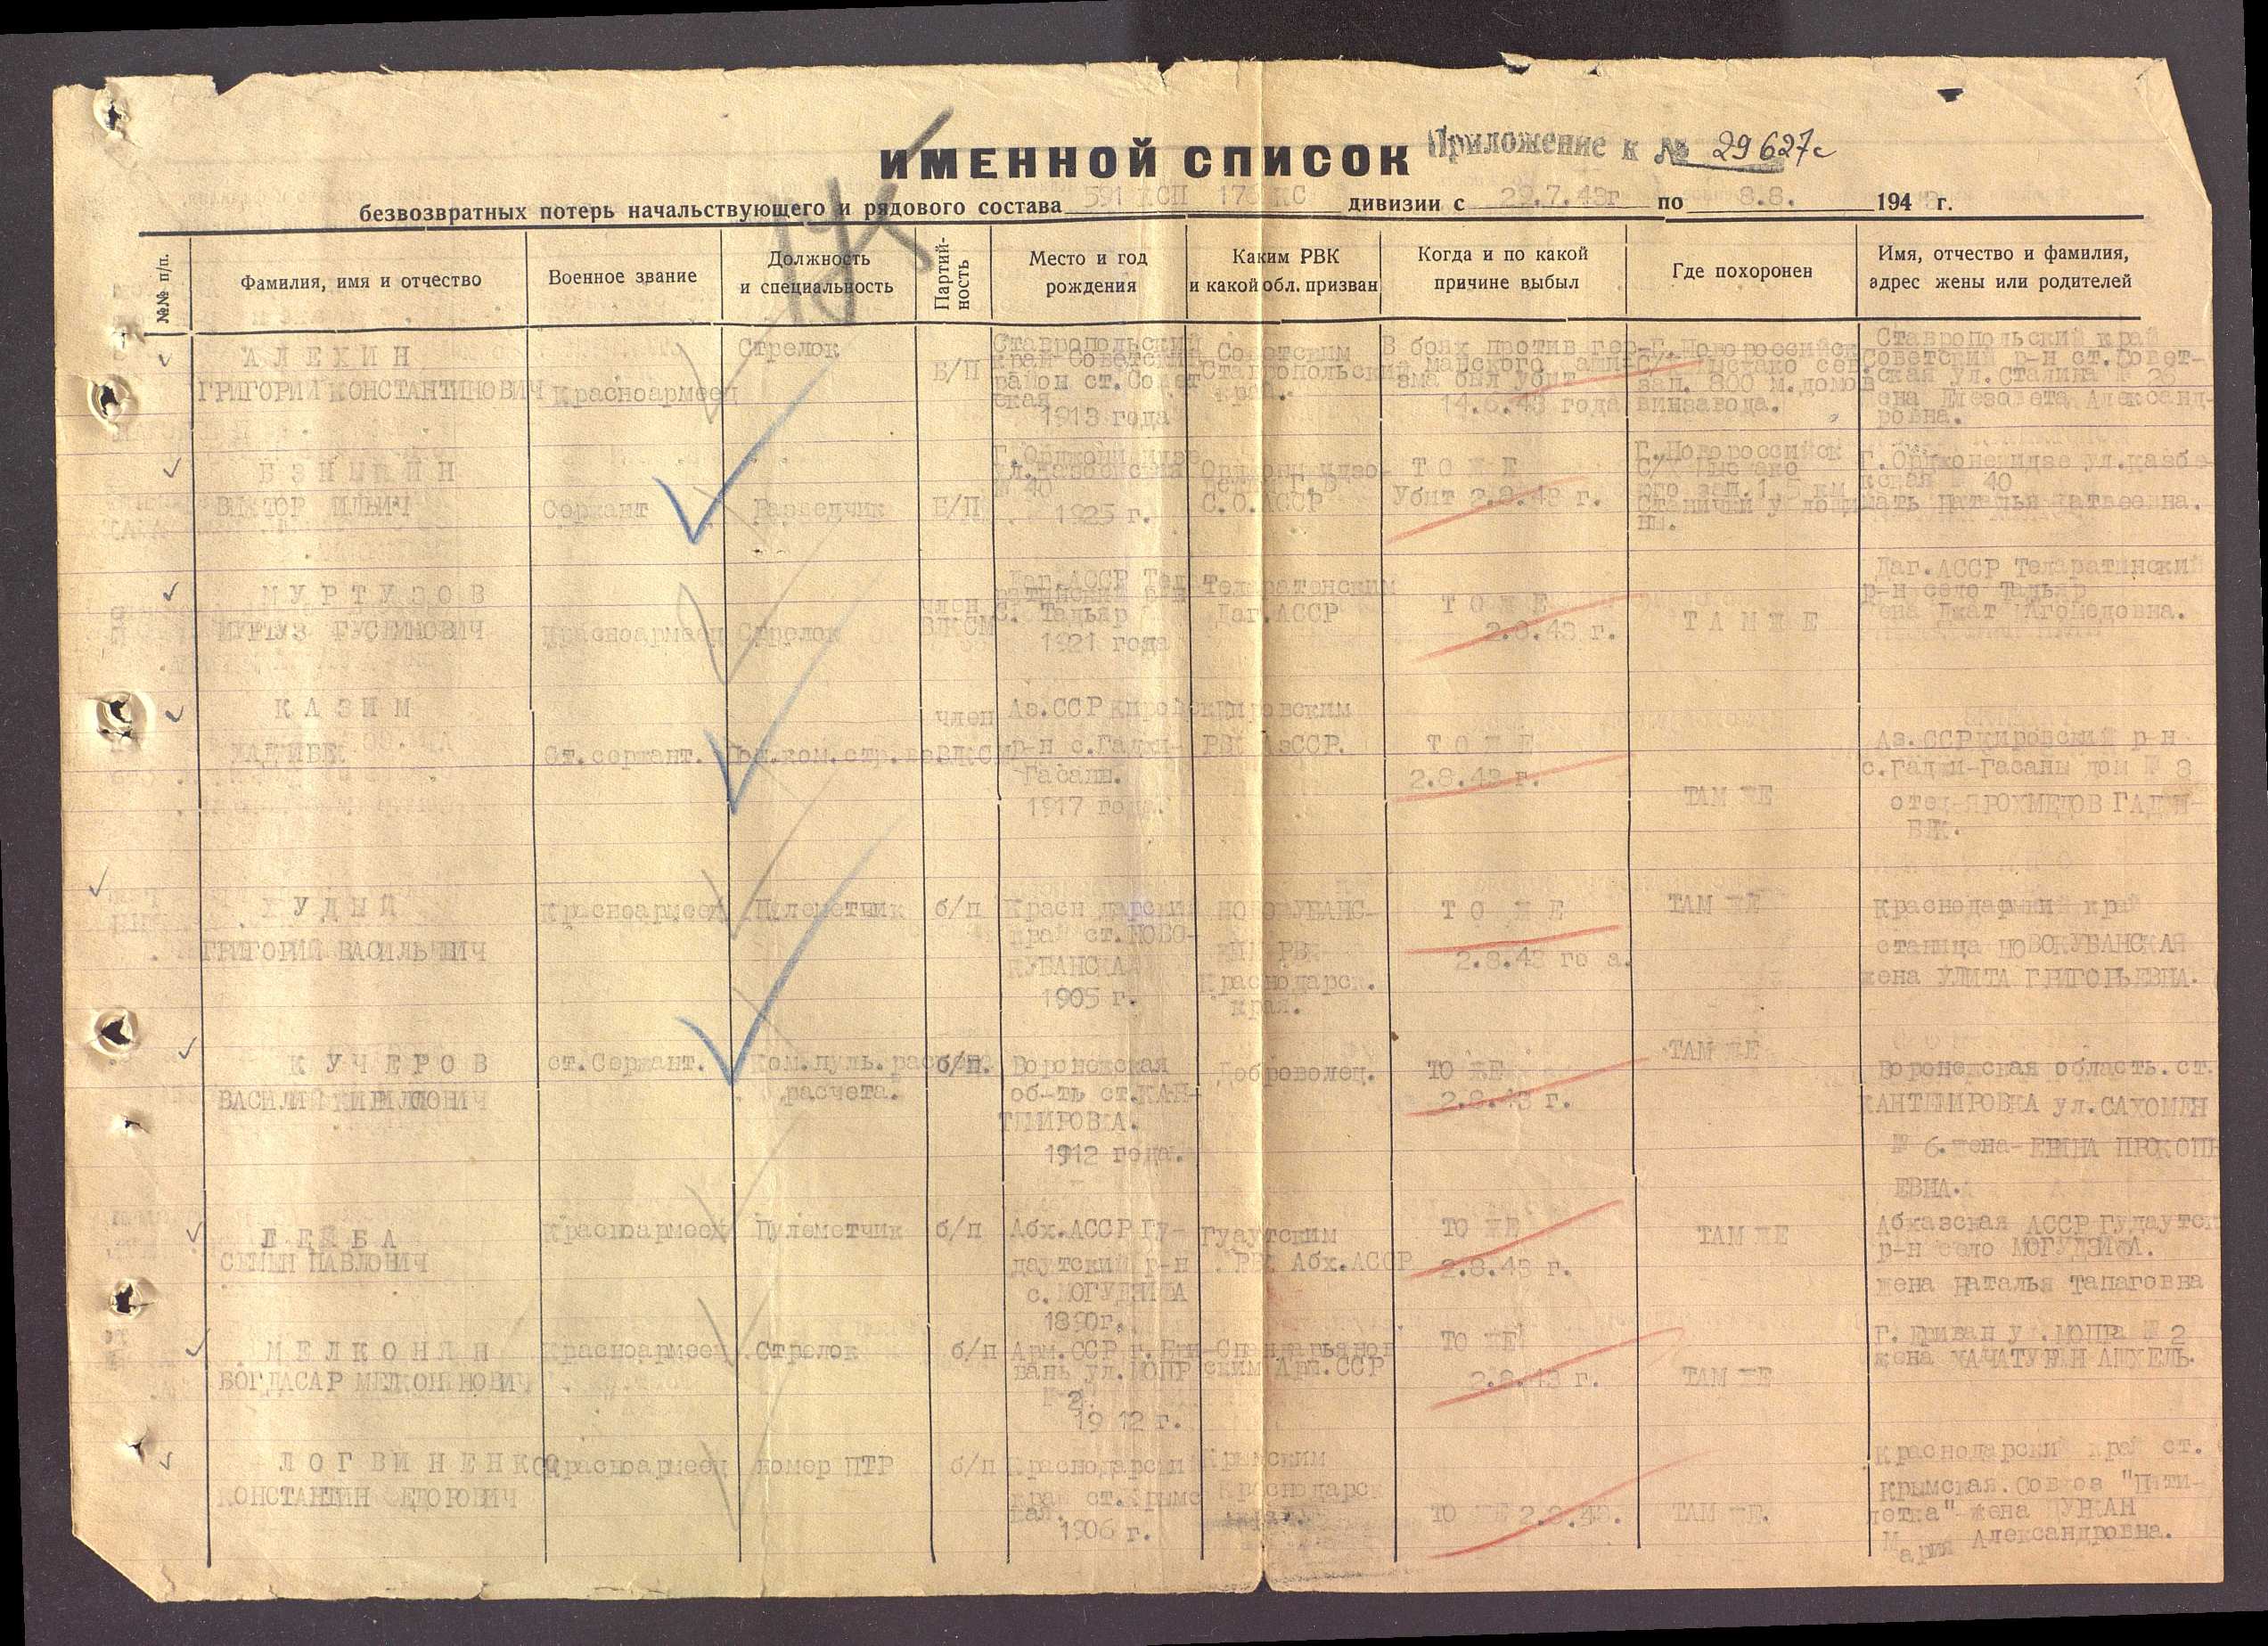 ИМЕННОЙ СПИСОК Приложение к № 29627с
безвозвратных потерь начальствующего и рядового состава 591 КСП 176 КС дивизии с 29.7.43г по 8.8. 1943 г.
№№ п/п.
Фамилия, имя и отчество
Военное звание
Должность
и специальность
Партий-
ность
Место и год
рождения
Каким РВК
и какой обл. призван
Когда и по какой
причине выбыл
Где похоронен
Имя, отчество и фамилия,
адрес жены или родителей
АЛЕХИН
ГРИГОРИЙ КОНСТАНТИНОВИЧ
Красноармеец
Стрелок
Б/П
Ставропольский
край Советский
район ст.Совет
ская
1913 года
Советским
Ставропольский
край.
В боях против гер-
манского
зма был убит
14.6.43 года
Г.Новороссийск
зап. 800 м.домов
винзавода.
Ставропольский край
Советский р-н ст.Совет-
ская ул.Сталина № 26
Александ-
ровна.
ВИКТОР ИЛЬИЧ
Сержант
Разведчик
Б/П
Г.Орджоникидзе
№ 40
1925 г.
С.О.АССР
ТО ЖЕ
Убит 2.8.43 г.
Г.Новороссийск
Г.Орджоникидзе ул.казбе-
кская № 40
мать Наталья Матвеевна.
МУРТУЗОВ
МУРТУЗ ГУСЕЙНОВИЧ
Красноармеец
Стрелок
член
ВЛКСМ
С. Тадьяр
1921 года
Даг.АССР
ТО ЖЕ
2.8.43 г.
ТАМ ЖЕ
Даг.АССР
р-н село Тадьяр
КАЗИМ
Ст.сержант.
член
ВЛКСМ
Аз.ССР Кировский
р-н с.Гаджи-
Гасаны.
1917 года.
Кировским
РВК АзССР.
ТО ЖЕ
2.8.43 г.
ТАМ ЖЕ
Аз.ССР Кировский р-н
с.Гаджи-Гасаны дом № 8
отец ЯРОХМЕДОВ ГАДЖИ-
БЕК.
ХУДЫЙ
ГРИГОРИЙ ВАСИЛЬЕВИЧ
Красноармеец
Пулеметчик
б/п
Краснодарский
край ст.НОВО-
КУБАНСКАЯ
1905 г.
НОВОКУБАНС-
КИМ РВК
Краснодарск.
края.
ТО ЖЕ
2.8.43 года.
ТАМ ЖЕ
Краснодарский край
станица НОВОКУБАНСКАЯ
жена УЛИТА ГРИГОРЬЕВНА.
КУЧЕРОВ
ВАСИЛИЙ КИРИЛЛОВИЧ
ст.Сержант.
Ком.пуль. расчета
расчета.
б/п.
Воронежская
об-ть ст.КАН-
ТЕМИРОВКА.
1912 года.
Доброволец.
ТО ЖЕ
2.8.43 г.
ТАМ ЖЕ
Воронежская область.ст.
КАНТЕМИРОВКА ул.САХОМЕН
№ 6.жена- ПРОКОПЬ
ЕВНА.
ЛЕЙБА
СЕМЕН ПАВЛОВИЧ
Красноармеец
Пулеметчик
б/п
Абх.АССР Гу-
даутский р-н
с.
1890г.
Гудаутским
РВК Абх.АССР
ТО ЖЕ
2.8.43 г.
ТАМ ЖЕ
Абхазская АССР Гудаутск
р-н село
жена Наталья Тапаговна
МЕЛКОНЯН
БОГДАСАР МЕЛКОНЯНОВИЧ
Красноармеец
Стрелок
б/п
Арм.ССР г.Ери-
вань ул.МОПР
№ 2.
1912 г.
Спандарьянов
ским Арм.ССР
ТО ЖЕ
2.8.43 г.
ТАМ ЖЕ
Г.Ериван ул.МОПРа № 2
жена ХАЧАТУРЯН АШХЕЛЬ.
ЛОГВИНЕНКО
КОНСТАНТИН ФЕДОРОВИЧ
Красноармеец
номер ПТР
б/п
Краснодарский
край ст.Крымс
кая.
1906 г.
Крымским
Краснодарск
края.
ТО ЖЕ 2.8.43.
ТАМ ЖЕ.
Краснодарский край ст.
Крымская.Совхоз "Пяти-
летка"-жена
Мария Александровна.